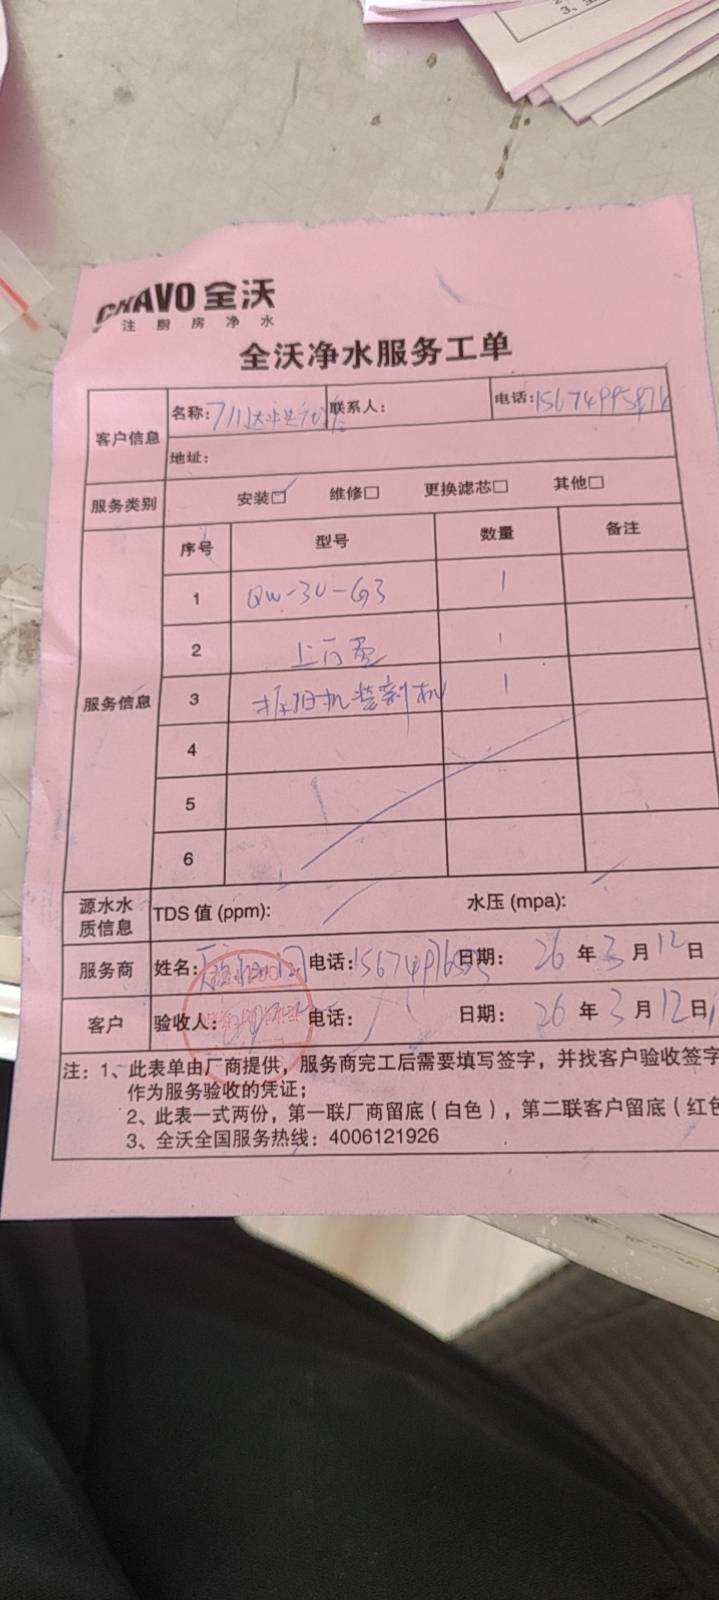 CHAVO 全沃
注厨房净水
全沃净水服务工单
客户信息 名称: 联系人: 电话:
地址:
服务类别 安装□ 维修□ 更换滤芯□ 其他□
服务信息 序号 型号 数量 备注
1 QW-3U-G3 1
2 1
3 1
4
5
6
源水水质信息 TDS 值 (ppm): 水压 (mpa):
服务商 姓名: 电话: 日期: 26 年 3 月 12 日
客户 验收人: 电话: 日期: 26 年 3 月 12 日
注: 1、此表单由厂商提供，服务商完工后需要填写签字，并找客户验收签字
作为服务验收的凭证；
2、此表一式两份，第一联厂商留底（白色），第二联客户留底（红色
3、全沃全国服务热线：4006121926